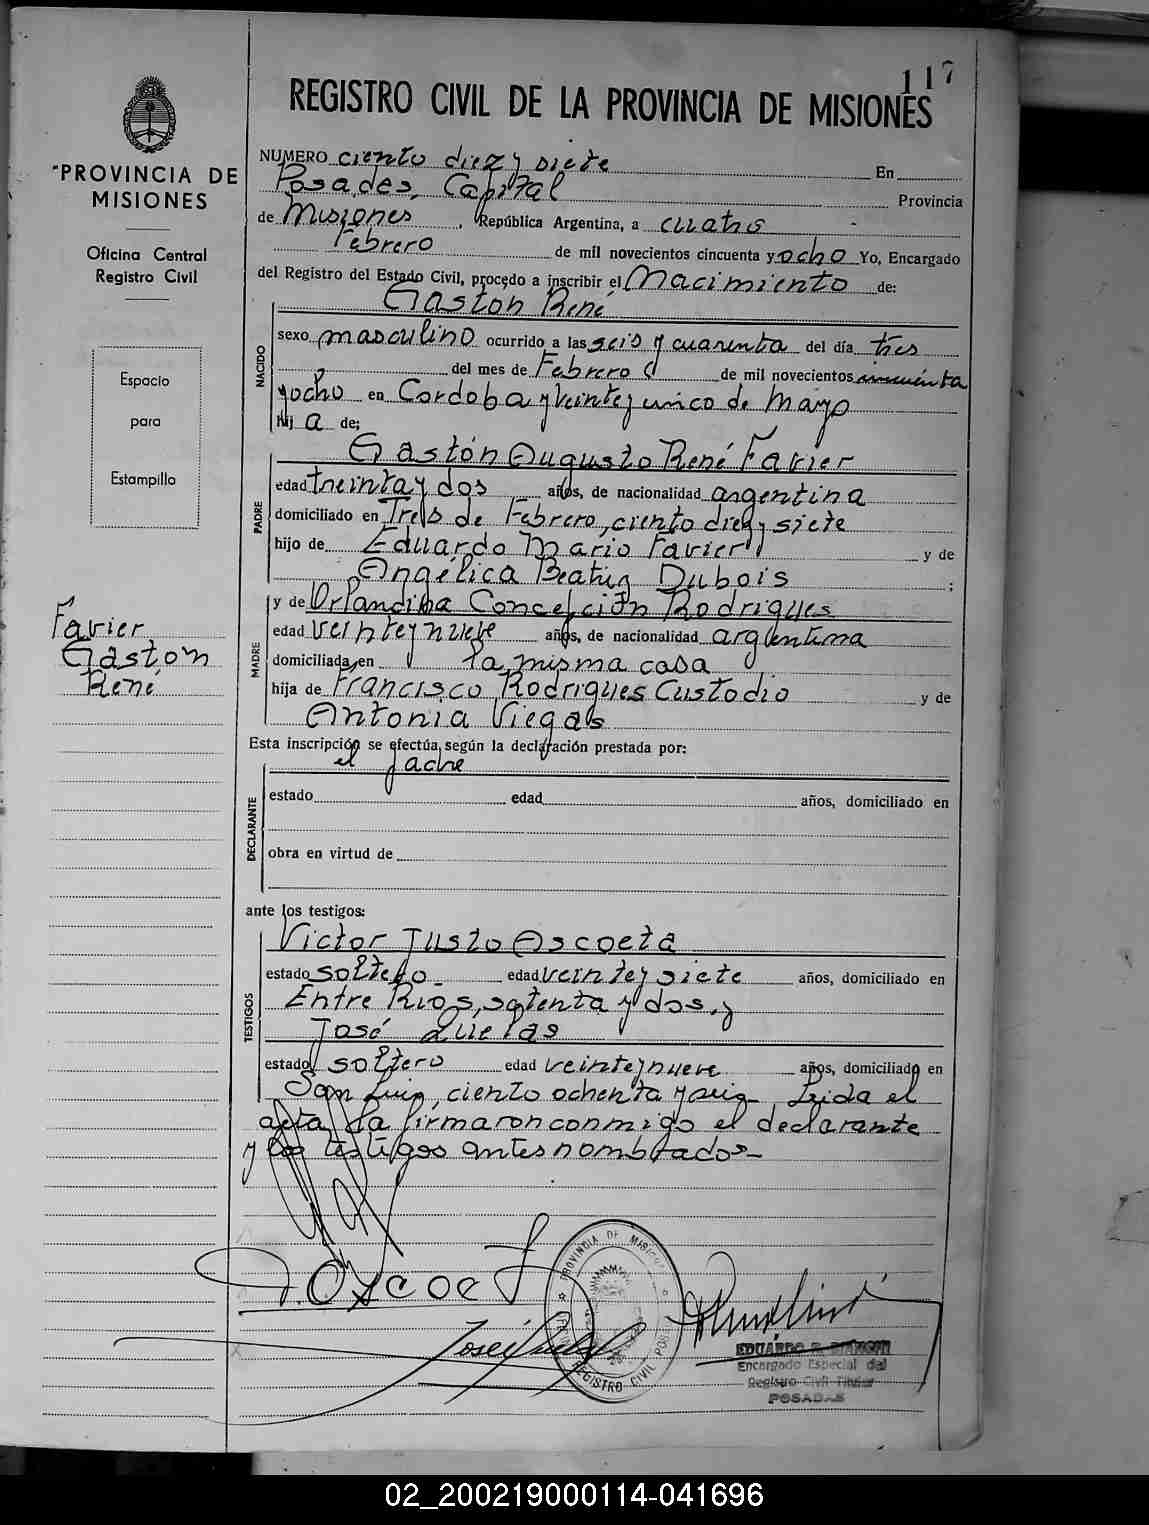 117
REGISTRO CIVIL DE LA PROVINCIA DE MISIONES
PROVINCIA DE
MISIONES
Oficina Central
Registro Civil
Espacio
para
Estampilla
Favier
Gaston
René
NUMERO ciento diez y siete En
Posadas, Capital Provincia
de Misiones, República Argentina, a cuatro
Febrero de mil novecientos cincuenta y ocho Yo, Encargado
del Registro del Estado Civil, procedo a inscribir el Nacimiento de:
Gaston René
NACIDO
sexo masculino ocurrido a las seis y cuarenta del día tres
del mes de Febrero de mil novecientos cincuenta
y ocho en Cordoba y veinte y cinco de Mayo
hij a de;
Gastón Augusto René Favier
PADRE
edad treinta y dos años, de nacionalidad argentina
domiciliado en Tres de Febrero, ciento diez y siete
hijo de Eduardo Mario Favier y de
Angélica Beatriz Dubois ;
y de Orlandina Concepción Rodrigues
MADRE
edad veinte y nueve años, de nacionalidad argentina
domiciliada en la misma casa
hija de Francisco Rodrigues Custodio y de
Antonia Viegas
Esta inscripción se efectúa según la declaración prestada por:
el padre
DECLARANTE
estado edad años, domiciliado en
obra en virtud de
ante los testigos:
Victor Justo Ascoeta
TESTIGOS
estado soltero edad veinte y siete años, domiciliado en
Entre Rios, setenta y dos, y
José
estado soltero edad veinte y nueve años, domiciliado en
San Luis, ciento ochenta y seis Leida el
acta la firmaron conmigo el declarante
y los testigos antes nombrados
PROVINCIA DE MISIONES
REGISTRO CIVIL
Encargado Especial del
Registro Civil Titular
POSADAS
02_200219000114-041696